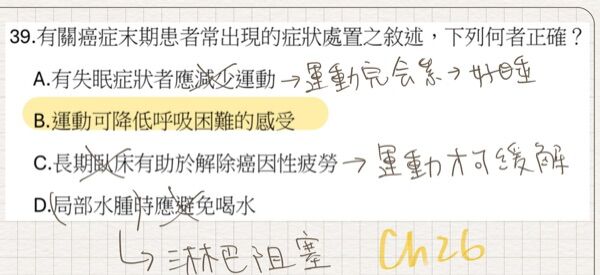 39.有關癌症末期患者常出現的症狀處置之敘述，下列何者正確？
A.有失眠症狀者應減少運動→運動完会累→好睡
B.運動可降低呼吸困難的感受
C.長期臥床有助於解除癌因性疲勞→運動才可緩解
D.(局部水腫)時應避免喝水
↳淋巴阻塞 Ch26